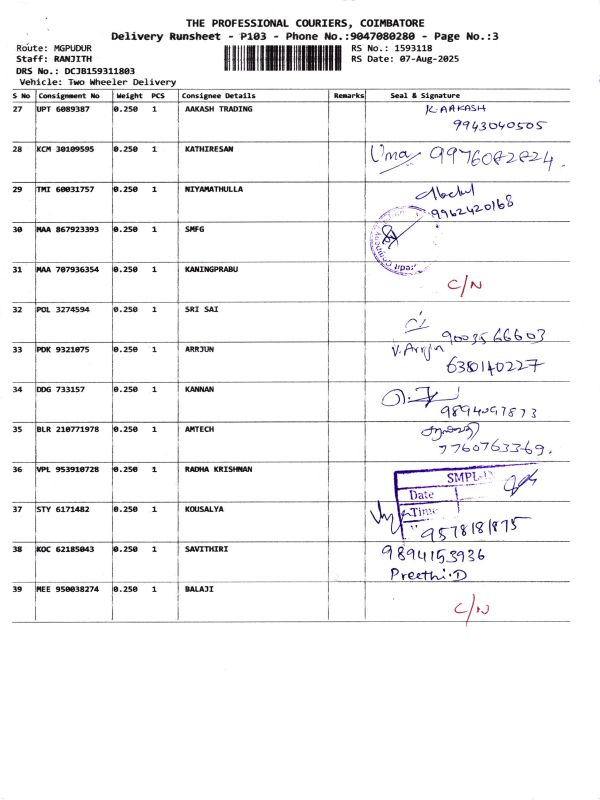 THE PROFESSIONAL COURIERS, COIMBATORE
Delivery Runsheet - P103 - Phone No.:9047080280 - Page No.:3
Route: MGPUDUR RS No.: 1593118
Staff: RANJITH RS Date: 07-Aug-2025
DRS No.: DCJB159311803
Vehicle: Two Wheeler Delivery
S No Consignment No Weight PCS Consignee Details Remarks Seal & Signature
27 UPT 6089387 0.250 1 AAKASH TRADING K. AAKASH
9943040505
28 KCM 30109595 0.250 1 KATHIRESAN Uma 9976082824.
29 TMI 60031757 0.250 1 NIYAMATHULLA
9962420168
30 MAA 867923393 0.250 1 SMFG
31 MAA 707936354 0.250 1 KANINGPRABU C/N
32 POL 3274594 0.250 1 SRI SAI
9003566603
33 PDK 9321075 0.250 1 ARRJUN V. Arrjun
6380140227
34 DDG 733157 0.250 1 KANNAN
9894097873
35 BLR 210771978 0.250 1 AMTECH
7760763369.
36 VPL 953910728 0.250 1 RADHA KRISHNAN SMPL
Date
37 STY 6171482 0.250 1 KOUSALYA Time
9578181875
38 KOC 62185043 0.250 1 SAVITHIRI 9894153936
Preethi.D
39 MEE 950038274 0.250 1 BALAJI C/N